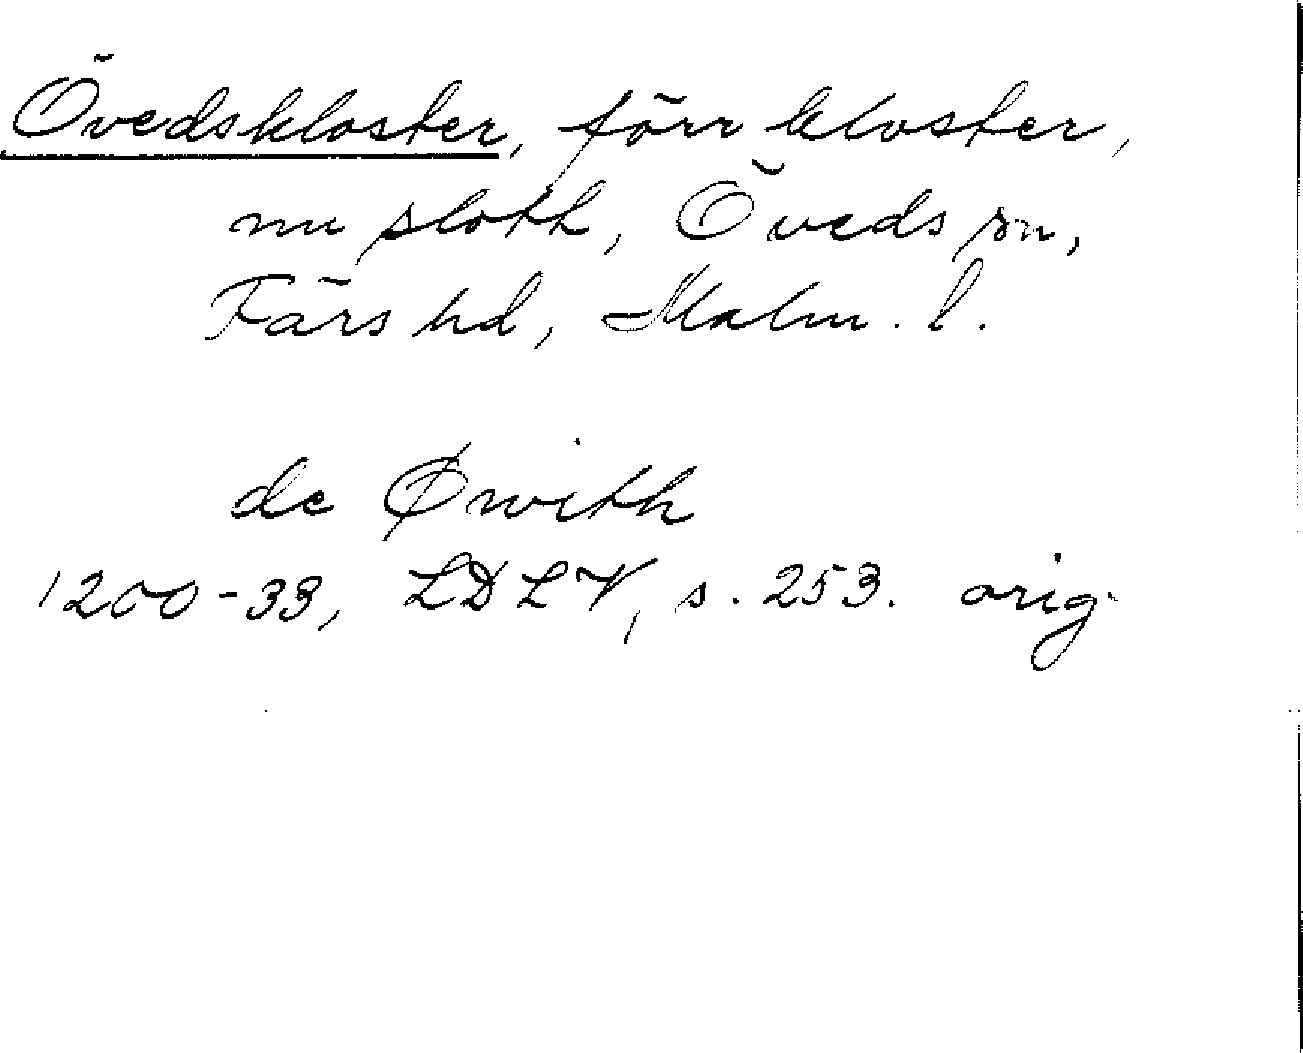 Övedskloster, förr kloster,
nu slott, Öveds sn,
Färs hd, Malm. l.
de Øwith
1200-33, LDLV, s. 253. orig.